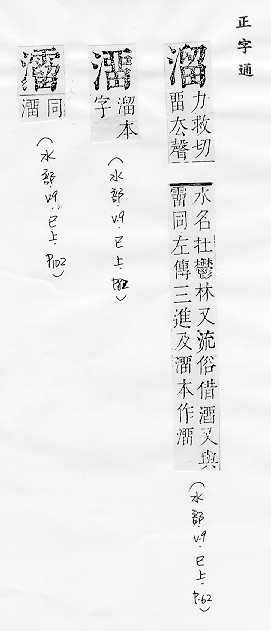 正字通
溜
力救切
畱厺聲
水名在鬱林又流俗借溜又與
霤同左傳三進及澑本作澑
(水部.V9.巳上.P.62)
澑
溜本
字
(水部.V9.巳上.P82)
同
澑
(水部.V9.巳上.P102)